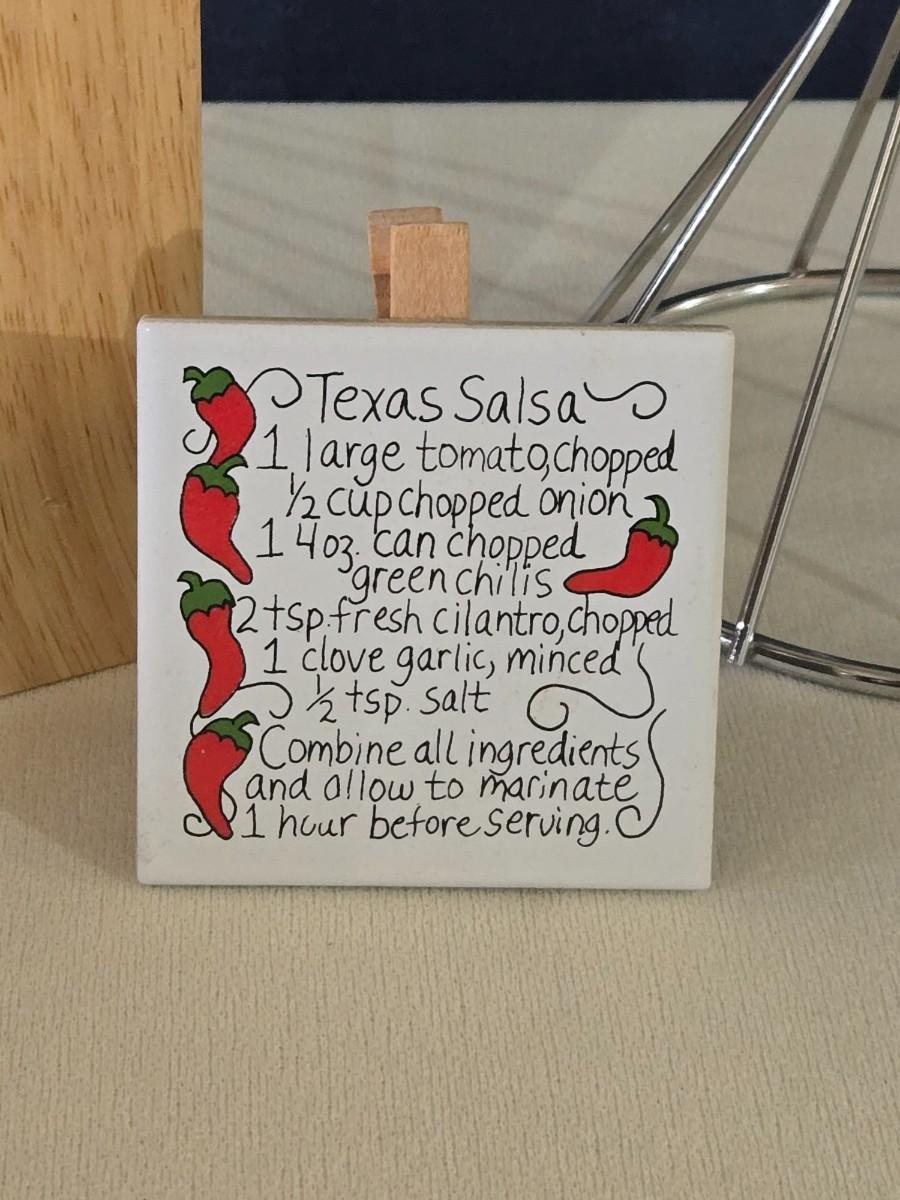 Texas Salsa
1 large tomato, chopped
½ cup chopped onion
1 4oz. can chopped
green chilis
2 tsp. fresh cilantro, chopped
1 clove garlic, minced
½ tsp. salt
Combine all ingredients
and allow to marinate
1 hour before serving.